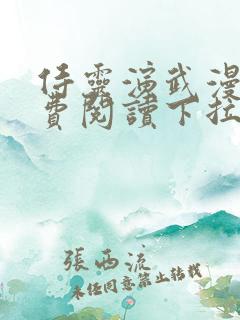 侍靈演武漫
費閱讀下拉
張西流
未经同意禁止转载